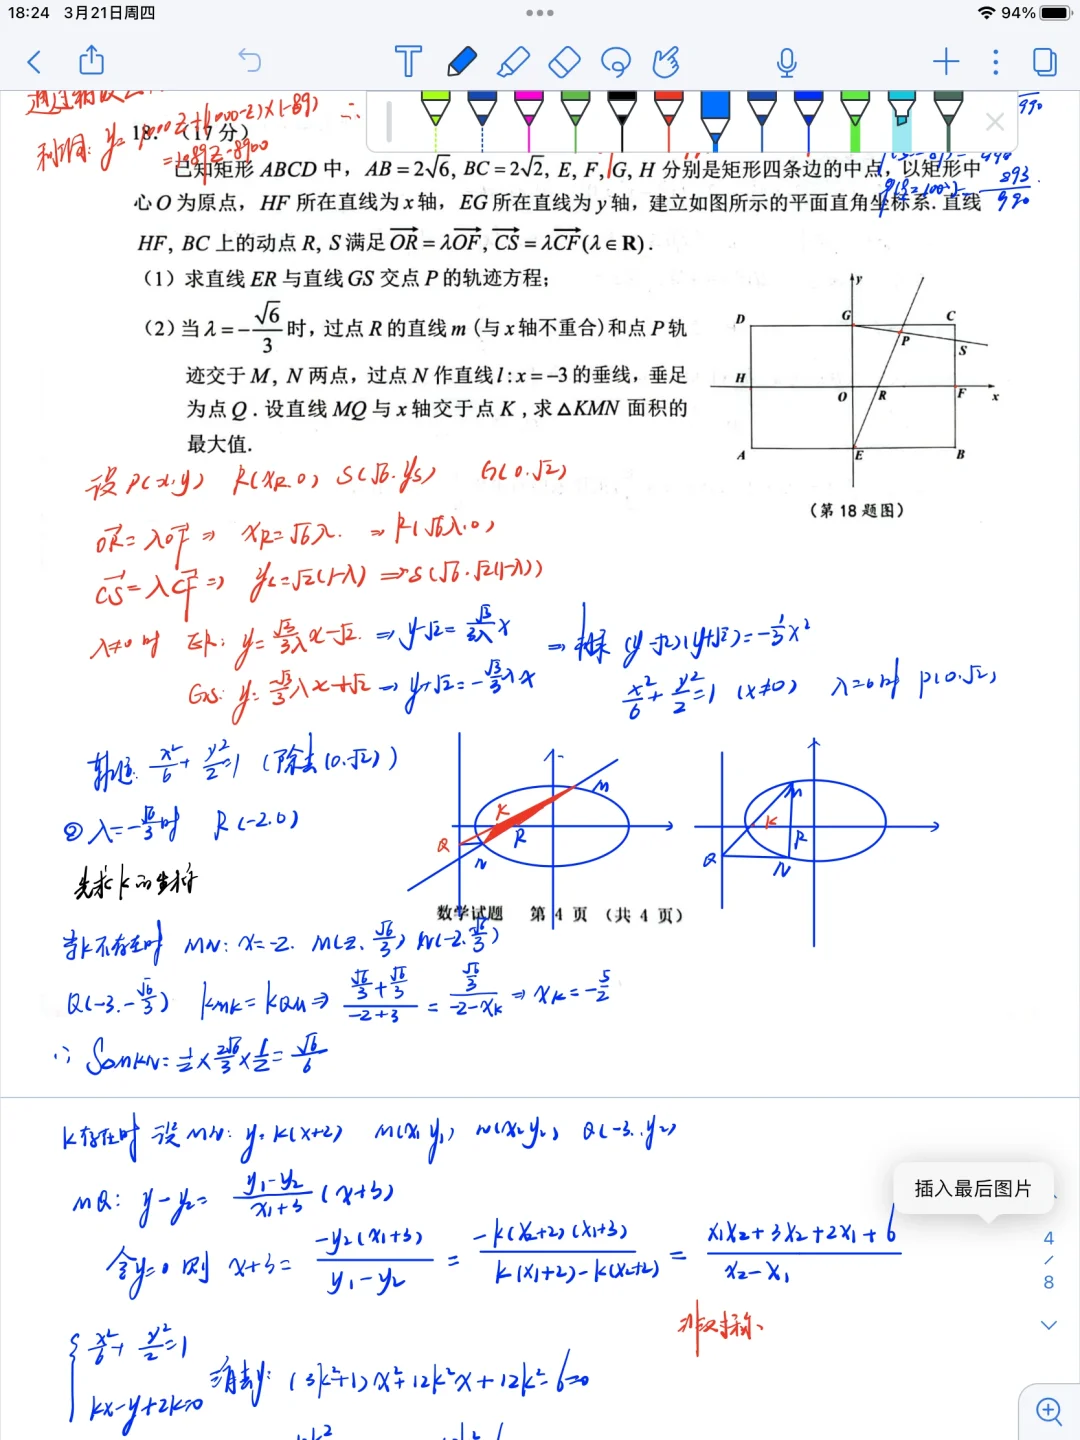 18:24 3月21日周四
94%
利润: y= 1000z+(1000-z)×(-89)
=1089z-89000
990
893
990
18. (17分)
已知矩形 ABCD 中，AB=2√6, BC=2√2, E, F, G, H 分别是矩形四条边的中点，以矩形中
心 O 为原点，HF 所在直线为 x 轴，EG 所在直线为 y 轴，建立如图所示的平面直角坐标系. 直线
HF, BC 上的动点 R, S 满足 OR=λOF, CS=λCF(λ∈R).
(1) 求直线 ER 与直线 GS 交点 P 的轨迹方程;
(2) 当 λ=-√6/3 时，过点 R 的直线 m (与 x 轴不重合) 和点 P 轨
迹交于 M, N 两点，过点 N 作直线 l: x=-3 的垂线，垂足
为点 Q. 设直线 MQ 与 x 轴交于点 K, 求 △KMN 面积的
最大值.
y
D G C
P
S
H O R F x
A E B
(第18题图)
设 P(x,y) R(xR,0) S(√6,ys) G(0,√2)
OR=λOF ⇒ xR=√6λ. ⇒ R(√6λ,0)
CS=λCF ⇒ ys=√2(1-λ) ⇒ S(√6,√2(1-λ))
λ≠0时 ER: y=√3/3λ x-√2. ⇒ y+√2=√3/3λ x
GS: y=-√3/3 λx+√2 ⇒ y-√2=-√3/3 λx
⇒ 相乘 (y-√2)(y+√2)=-1/3x²
x²/6+y²/2=1 (x≠0) λ=0时 P(0,√2)
轨迹: x²/6+y²/2=1 (除去(0,√2))
② λ=-√6/3时 R(-2,0)
先求K的坐标
M
K
Q R
N
M
K
R
Q
N
数学试题 第 4 页 (共 4 页)
当k不存在时 MN: x=-2. M(-2,√6/3) N(-2,-√6/3)
Q(-3,-√6/3) kMK=kQM ⇒ (√6/3+√6/3)/(-2+3) = (√6/3)/(-2-xK) ⇒ xK=-5/2
∴ S△MKN=1/2×2√6/3×1/2=√6/6
k存在时 设MN: y=k(x+2) M(x1,y1) N(x2,y2) Q(-3,y2)
MQ: y-y2= (y1-y2)/(x1+3) (x+3)
插入最后图片
令y=0 则 x+3= -y2(x1+3)/(y1-y2) = -k(x2+2)(x1+3)/(k(x1+2)-k(x2+2)) = (x1x2+3x2+2x1+6)/(x2-x1)
4
/
8
非对称
{ x²/6+y²/2=1
kx-y+2k=0
消去y: (3k²+1)x²+12k²x+12k²-6=0